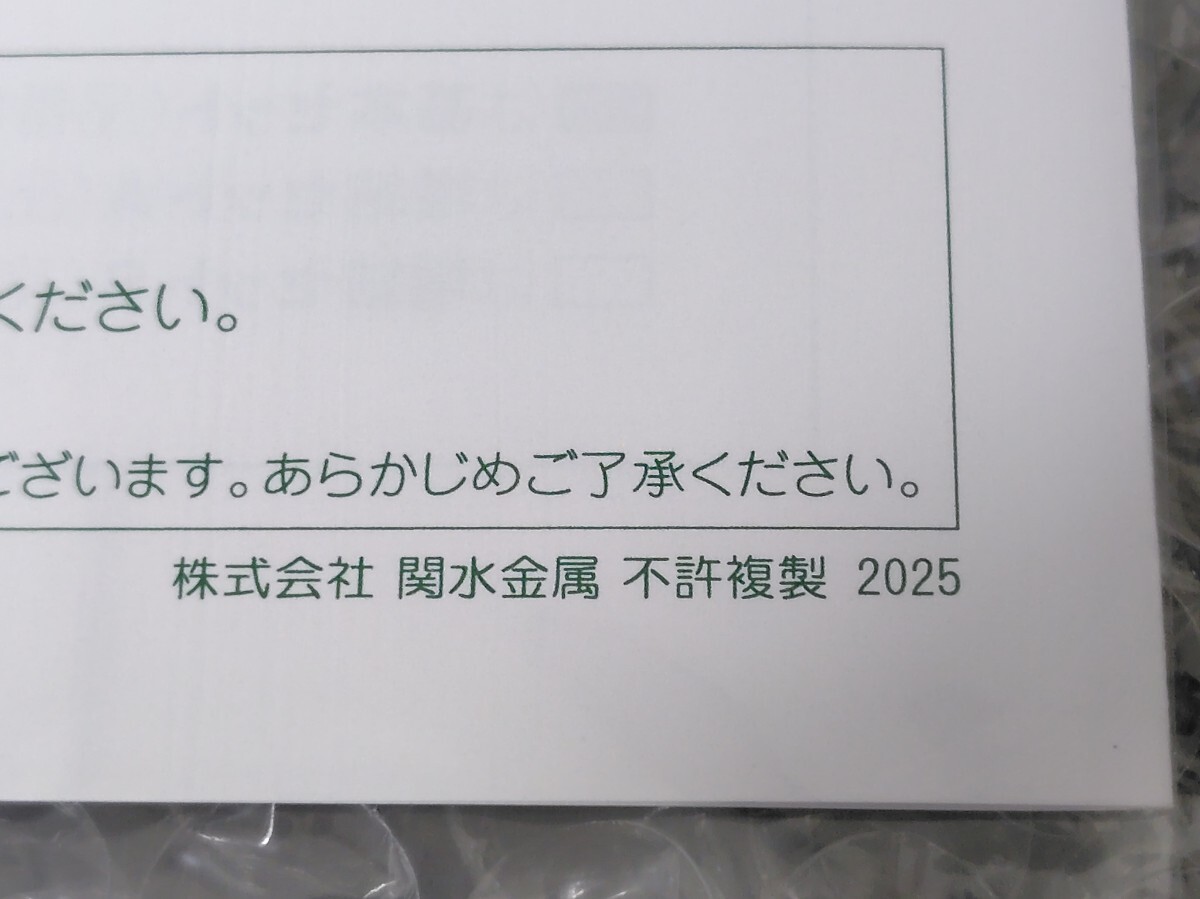 ください。
ございます。あらかじめご了承ください。
株式会社 関水金属 不許複製 2025